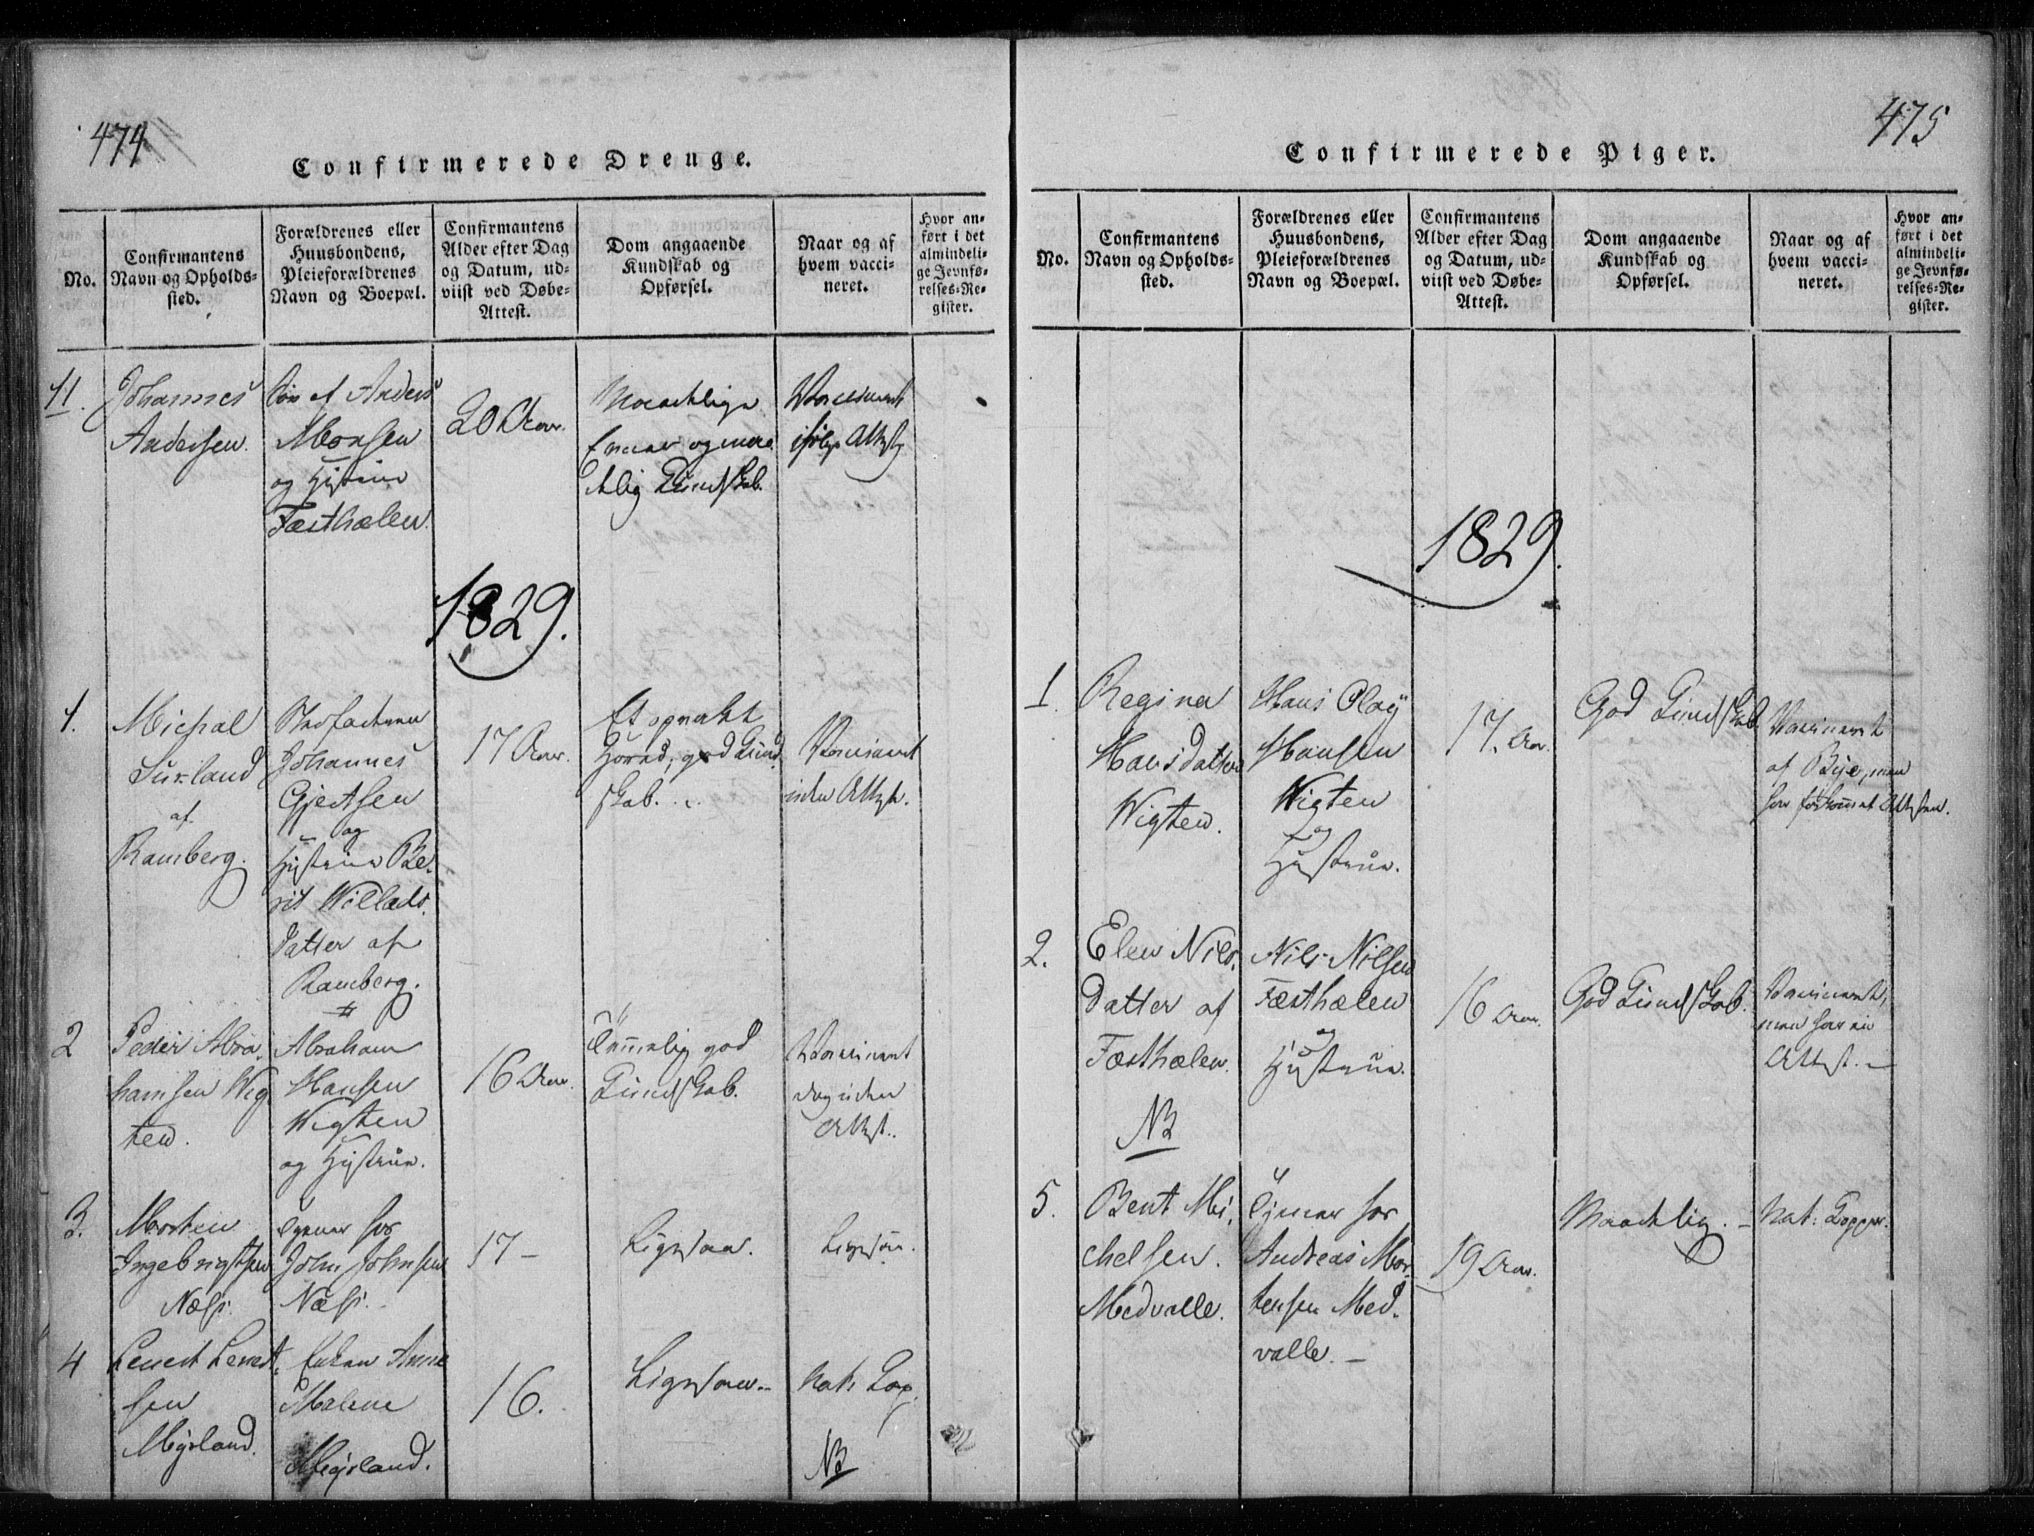 474
Confirmerede Drenge.
No.
Confirmantens
Navn og Opholds-
sted.
Forældrenes eller
Huusbondens,
Pleieforældrenes
Navn og Boepæl.
Confirmantens
Alder efter Dag
og Datum, ud-
viist ved Døbe-
Attest.
Dom angaaende
Kundskab og
Opførsel.
Naar og af
hvem vacci-
neret.
Hvor an-
ført i det
almindeli-
ge Jevnfø-
relses-Re-
gister.
11.
Johannes
Andersen.
Søn af Anders
Monsen
og Hystrue
Færthælen.
20 Aar.
Maadelige
Evner og maa
delig Kundskab.
Vaccineret
ifølge Attest
1829.
1.
Michal
Surland
af
Ramberg.
Johannes
Gjertsen
og
Hystrue Be-
rit Willads
datter af
Ramberg.
17 Aar.
Et opvakt
Hoved, god Kund-
skab.
Vaccineret
uden Attest.
2
Peder Abra-
hamsen Wig
ten.
Abraham
Hansen
Wigten
og Hystrue.
16 Aar.
Temmelig god
Kundskab.
Vaccineret
dog uden
Attest.
3.
Morten
Ingebrigtsen
Næss.
Tjener hos
John Johnsen
Næss.
17 -
Ligesaa.
Ligesaa.
4
Lenert Lenert-
sen
Myrland.
Enken Anne
Malene
Myrland.
16.
Ligesaa.
Nat. Kop.
NB
475
Confirmerede Piger.
No.
Confirmantens
Navn og Opholds-
sted.
Forældrenes eller
Huusbondens,
Pleieforældrenes
Navn og Boepæl.
Confirmantens
Alder efter Dag
og Datum, ud-
viist ved Døbe-
Attest.
Dom angaaende
Kundskab og
Opførsel.
Naar og af
hvem vacci-
neret.
Hvor an-
ført i det
almindeli-
ge Jevnfø-
relses-Re-
gister.
1829.
1.
Regina
Hansdatter
Wigten.
Hans Olaÿ
Hansen
Wigten
og
Hystrue.
17. Aar.
God Kundskab.
Vaccineret
af Bye, men
har forkommet Attesten.
2.
Elen Nils-
datter af
Færthælen.
NB
Nils Nilsen
Færthælen
og
Hystrue.
16 Aar.
God Kundskab.
Vaccineret,
men har ei
Attest. -
5.
Bent Mi-
chelsen.
Medvalle.
Tjener hos
Andreas Mor-
tensen Med-
valle. -
19 Aar.
Maadelig. -
Nat. Kopper.